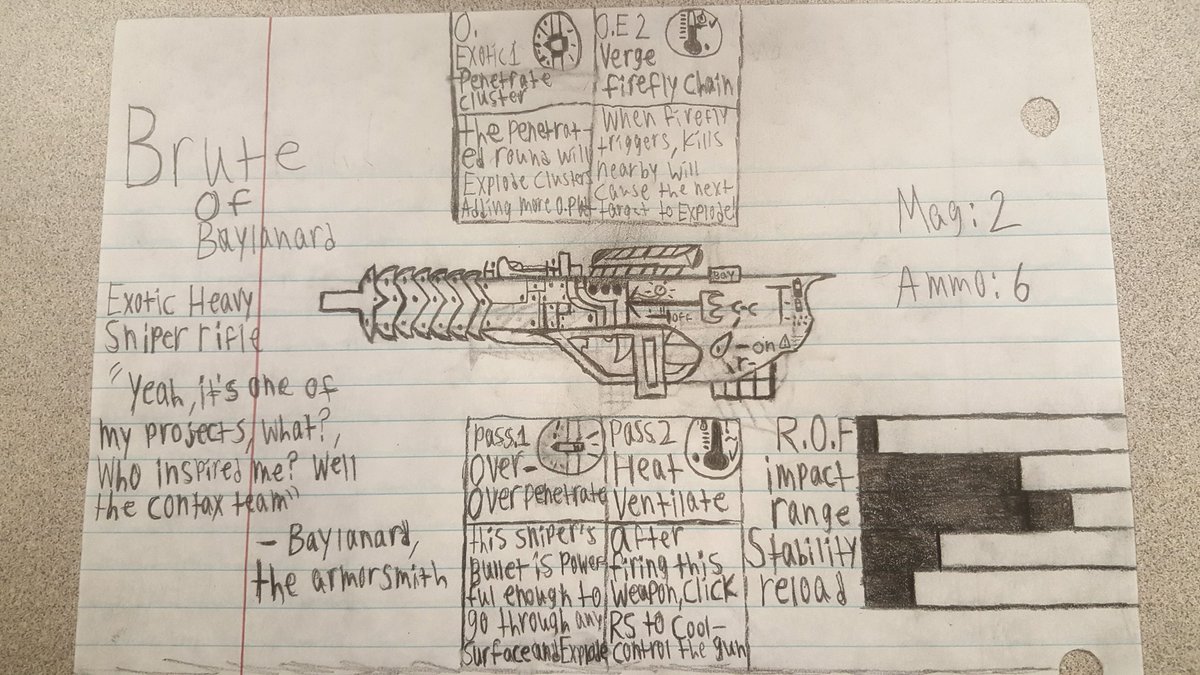 Brute
Of
Baylanard
Exotic Heavy
Sniper rifle
"Yeah, it's one of
my projects, what?,
Who inspired me? Well
the contax team"
- Baylanard,
the armorsmith
O.
Exotic 1
Penetrate
cluster
the penetrat-
ed round will
Explode clusters
Adding more O.P.
O.E 2
Verge
firefly chain
When firefly
triggers, kills
nearby will
cause the next
target to Explode
Mag: 2
Ammo: 6
BAY
OFF
-on
-r-
pass.1
Over-
Overpenetrate
this sniper's
Bullet is power
ful enough to
go through any
Surface and Explode
Pass.2
Heat
Ventilate
after
firing this
weapon, click
RS to Cool-
control the gun
R.O.F
impact
range
Stability
reload